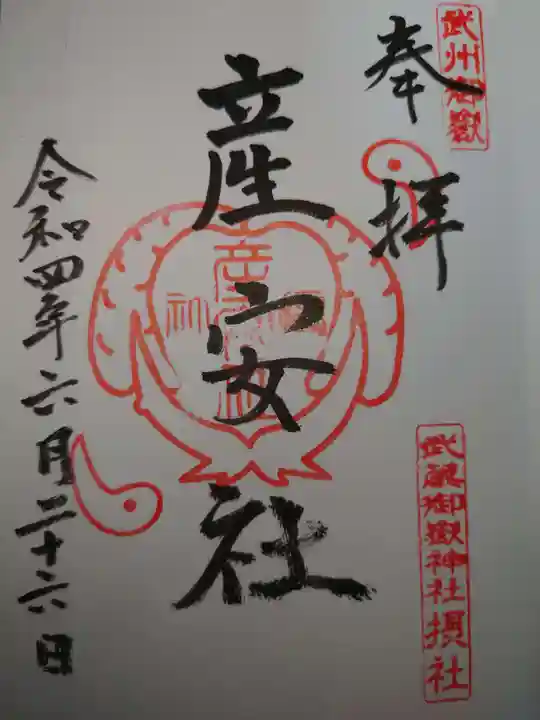 武州御嶽
奉拝
産安社
武蔵御嶽神社摂社
令和四年六月二十六日